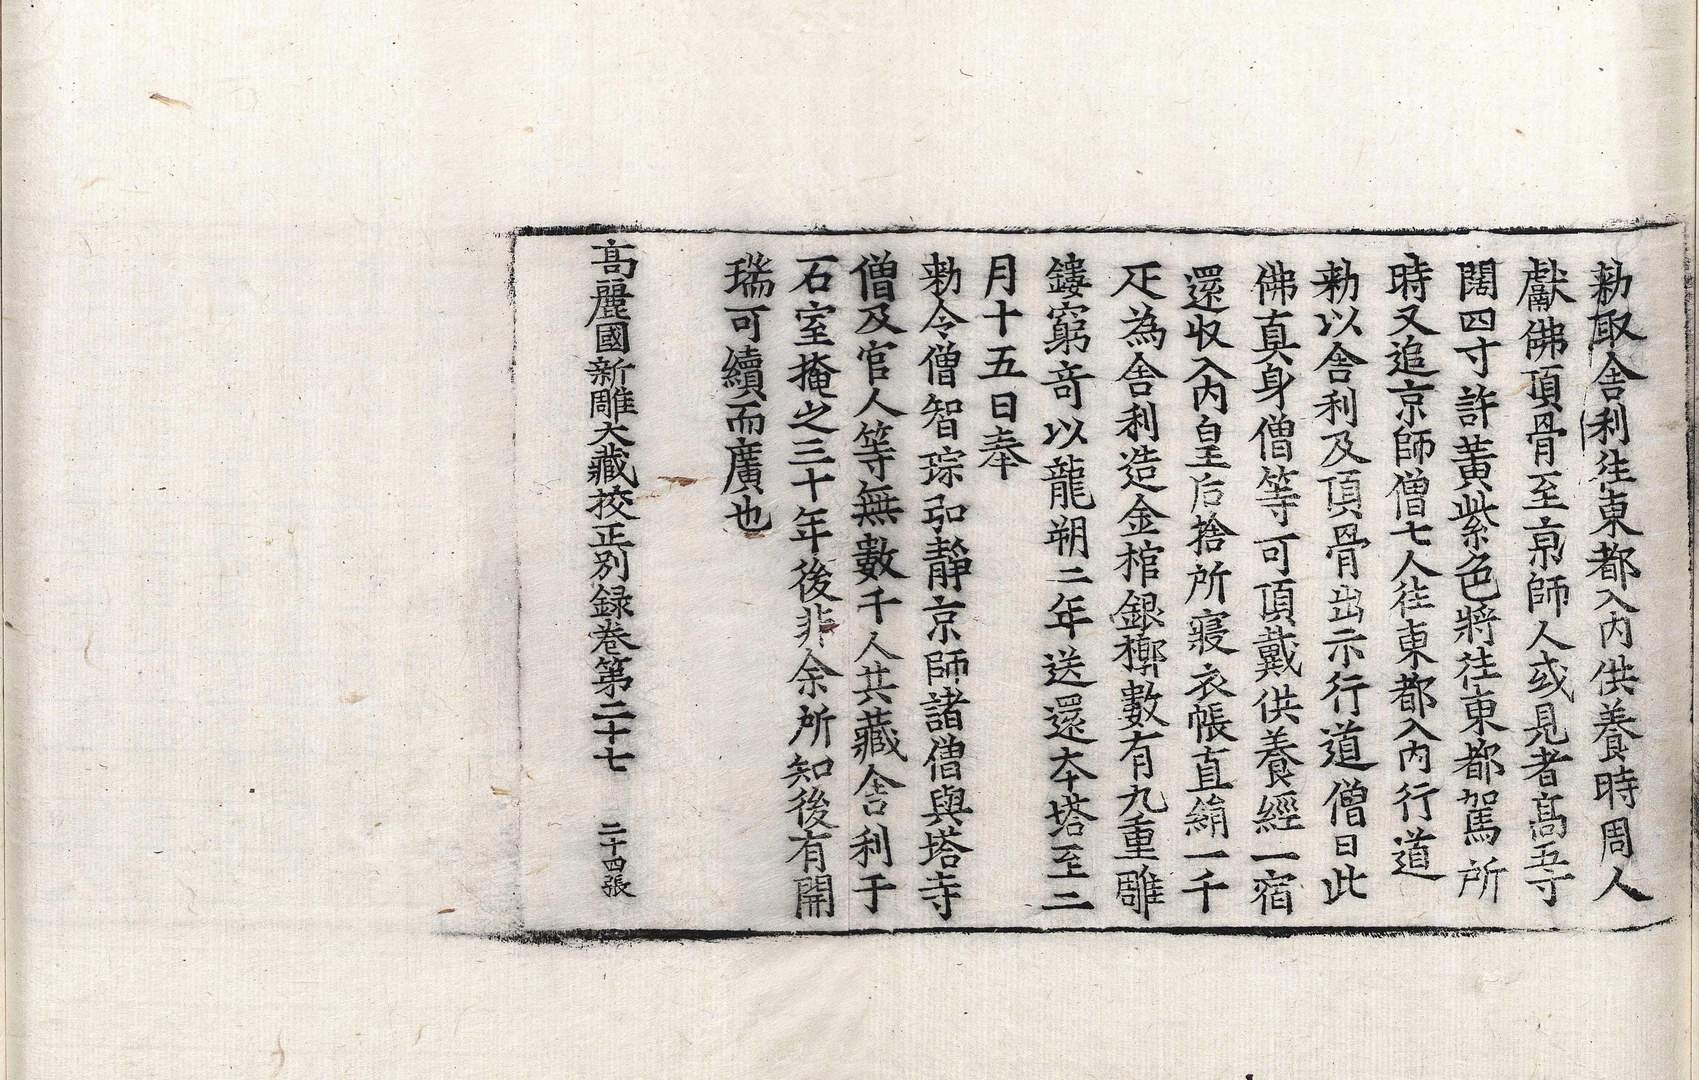 勅取舍利往東都入內供養時周人
獻佛頂骨至京師人或見者高五寸
闊四寸許黃紫色將往東都駕所
時又追京師僧七人往東都入內行道
勅以舍利及頂骨出示行道僧曰此
佛真身僧等可頂戴供養經一宿
還收入內皇后捨所寢衣帳直絹一千
疋為舍利造金棺銀槨數有九重雕
鏤窮奇以龍朔二年送還本塔至二
月十五日奉
勅令僧智琮弘靜京師諸僧與塔寺
僧及官人等無數千人共藏舍利于
石室掩之三十年後非余所知後有開
瑞可續而廣也
高麗國新雕大藏挍正別録卷第二十七　二十四張